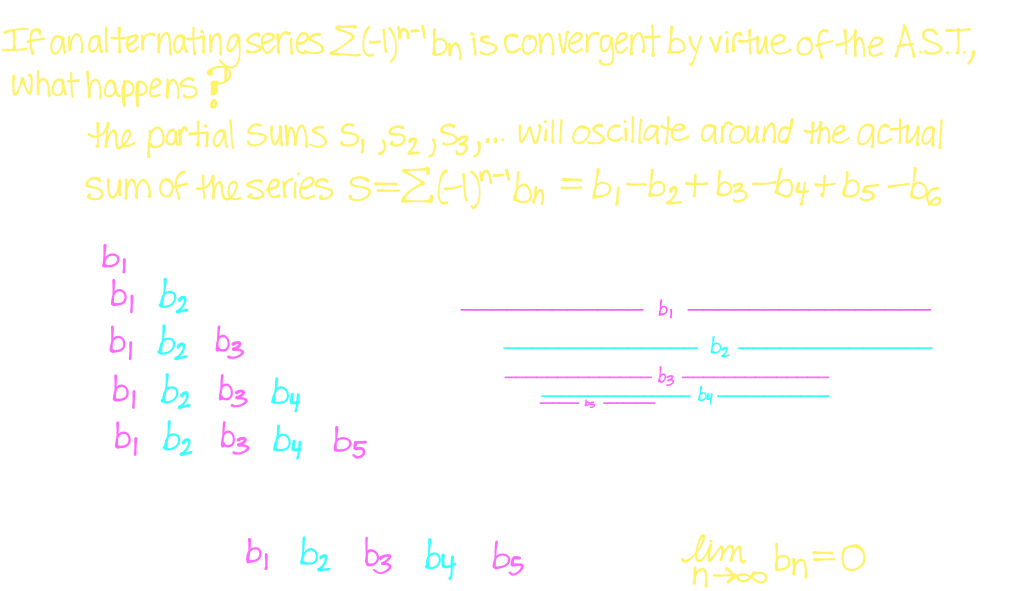 If an alternating series Σ(-1)ⁿ⁻¹ bₙ is convergent by virtue of the A.S.T.,
what happens?
the partial sums S₁, S₂, S₃, ... will oscillate around the actual
sum of the series S = Σ(-1)ⁿ⁻¹ bₙ = b₁ - b₂ + b₃ - b₄ + b₅ - b₆
b₁
b₁ b₂
b₁ b₂ b₃
b₁ b₂ b₃ b₄
b₁ b₂ b₃ b₄ b₅
b₁
b₂
b₃
b₄
b₅
b₁ b₂ b₃ b₄ b₅
lim n→∞ bₙ = 0